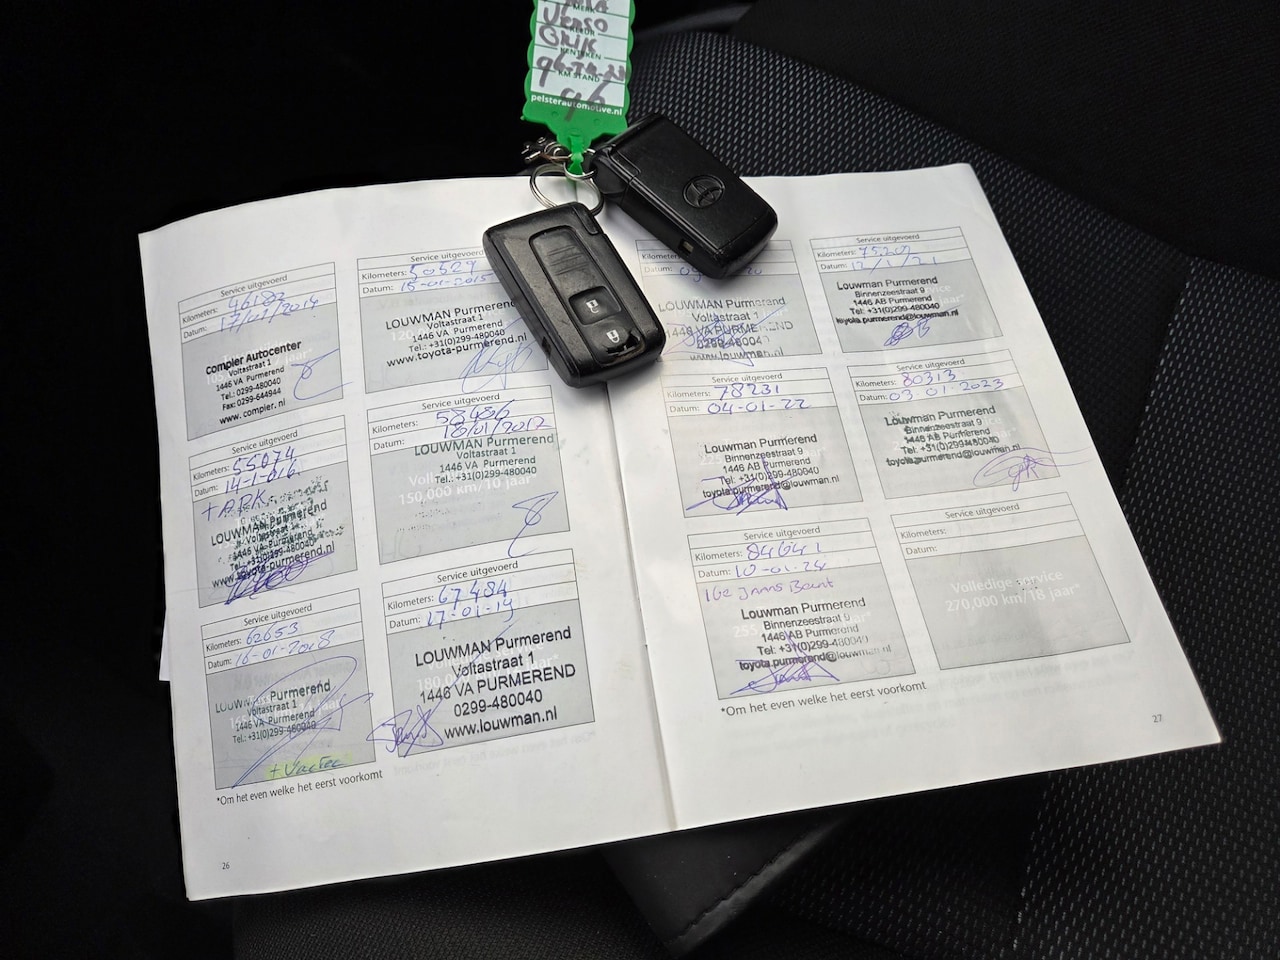 MERK
Verso
KLEUR
Grijs
KENTEKEN
KM STAND
96
pelsterautomotive.nl
Service uitgevoerd
Kilometers: 46182
Datum: 17/01/2014
compier Autocenter
Voltastraat 1
1446 VA Purmerend
Tel.: 0299-480040
Fax: 0299-644944
www.compier.nl
Service uitgevoerd
Kilometers: 50529
Datum: 15-01-2015
LOUWMAN Purmerend
Voltastraat 1
1446 VA Purmerend
Tel.: +31(0)299-480040
www.toyota-purmerend.nl
Service uitgevoerd
Kilometers: 55074
Datum: 14-1-016
LOUWMAN Purmerend
Voltastraat 1
1446 VA Purmerend
Tel.: +31(0)299-480040
www.toyota-purmerend.nl
Service uitgevoerd
Kilometers: 58486
Datum: 18/01/2017
LOUWMAN Purmerend
Voltastraat 1
1446 VA Purmerend
Tel.: +31(0)299-480040
150,000 km/10 jaar*
Service uitgevoerd
Kilometers: 62653
Datum: 16-01-2018
LOUWMAN Purmerend
Voltastraat 1
1446 VA Purmerend
Tel.: +31(0)299-480040
Service uitgevoerd
Kilometers: 67484
Datum: 17-01-19
LOUWMAN Purmerend
Voltastraat 1
1446 VA PURMEREND
0299-480040
www.louwman.nl
*Om het even welke het eerst voorkomt
26
Kilometers:
Datum:
LOUWMAN Purmerend
Voltastraat 1
1446 VA PURMEREND
0299-480040
www.louwman.nl
Service uitgevoerd
Kilometers: 75209
Datum: 12/1/21
Louwman Purmerend
Binnenzeestraat 9
1446 AB Purmerend
Tel: +31(0)299-480040
toyota.purmerend@louwman.nl
Service uitgevoerd
Kilometers: 78231
Datum: 04-01-22
Louwman Purmerend
Binnenzeestraat 9
1446 AB Purmerend
Tel: +31(0)299-480040
toyota.purmerend@louwman.nl
Service uitgevoerd
Kilometers: 80313
Datum: 03-01-2023
Louwman Purmerend
Binnenzeestraat 9
1446 AB Purmerend
Tel: +31(0)299-480040
toyota.purmerend@louwman.nl
Service uitgevoerd
Kilometers: 84641
Datum: 10-01-24
16e Jaars Beurt
Louwman Purmerend
Binnenzeestraat 9
1446 AB Purmerend
Tel: +31(0)299-480040
toyota.purmerend@louwman.nl
Service uitgevoerd
Kilometers:
Datum:
Volledige service
270,000 km/18 jaar*
*Om het even welke het eerst voorkomt
27